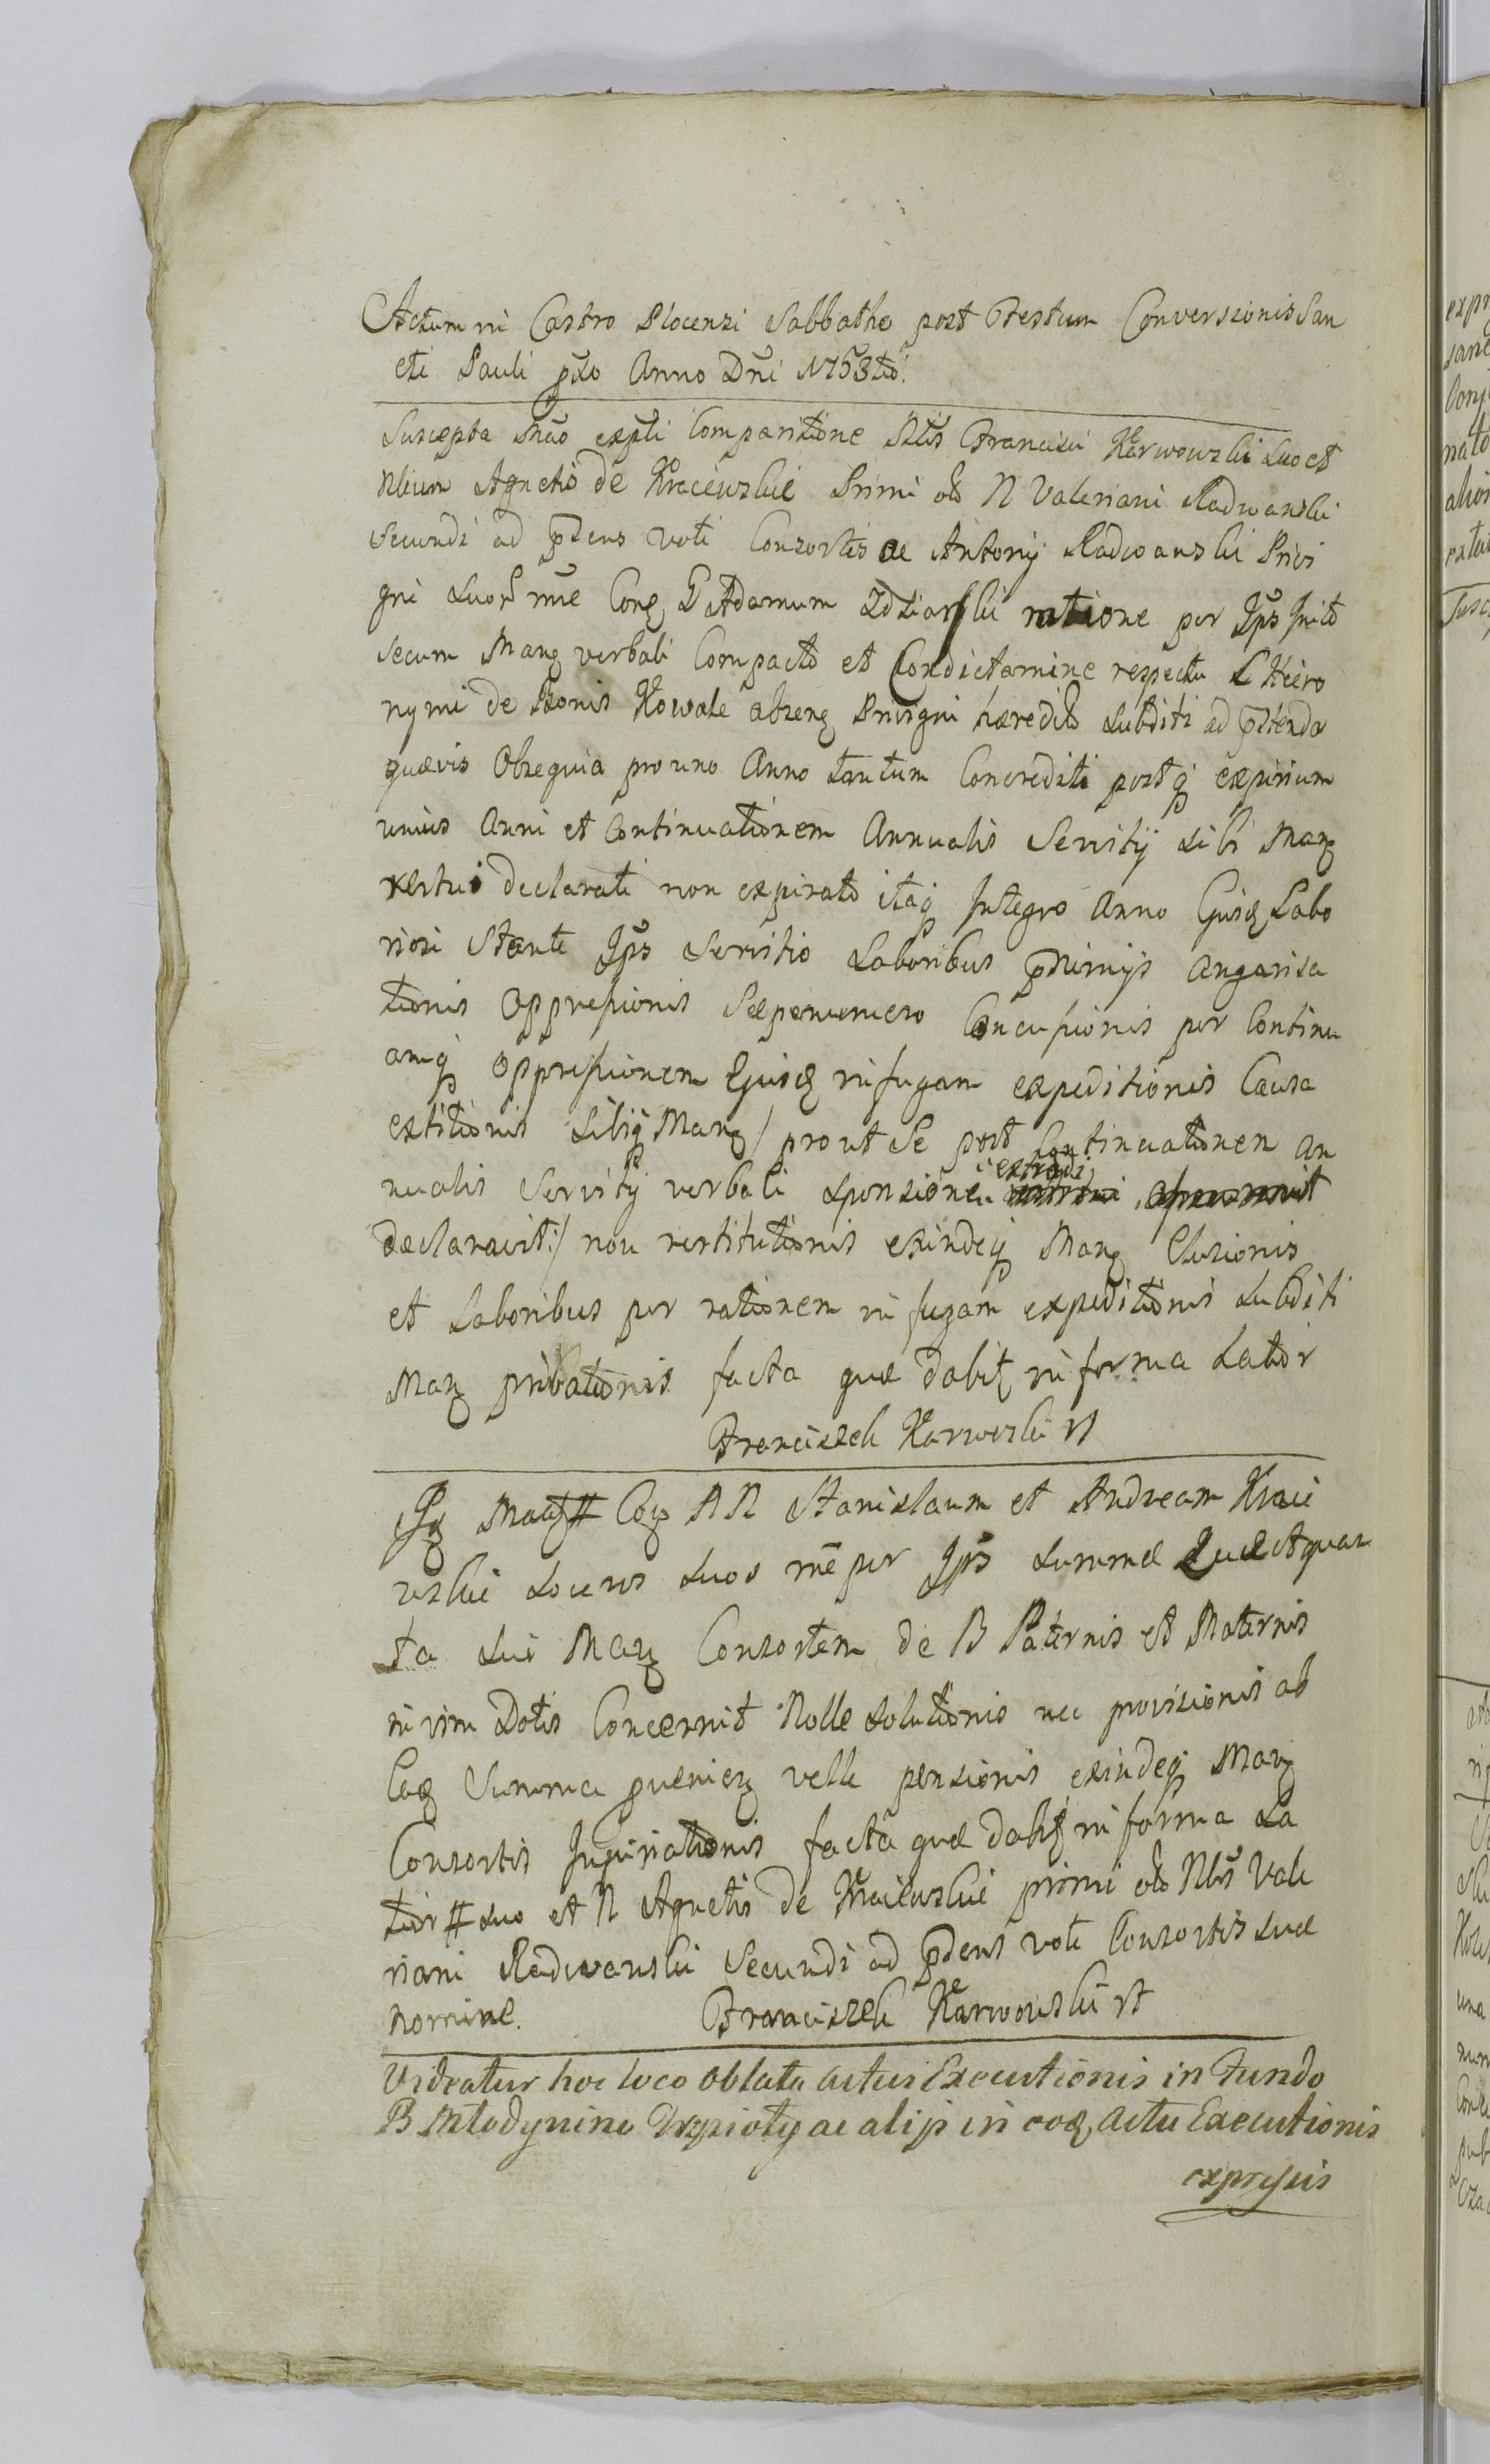 Actum in Castro Plocensi Sabbatho post Festum Conversionis San
cti Pauli pxo Anno Dni 1753tio.
Suscepta Mcao expli Comparitione Nlis Francisci Karwowski suo et
Nlium Agnetis de Kraiewskie Primi olo N Valeriani Radwanski
Secundi ad pdens voti Consortis ac Antonij Radwanski Privi
gni suor nne Conq G Adamum Zdziarski ratione per Ips Inito
secum Manq verbali Compacto et Condictamine respectu L Hiero
nymi de Bonis Kowale absenq Privigni hæredito subditi ad pstenda
quævis Obsequia pro uno Anno tantum Concrediti postq expirium
unius Anni et Continuationem Annualis Servitij sibi Manq
restitui declarati non expirato itaq Integro Anno Ejusd Labo
riosi Stante Ips Servitio Laboribus pnimijs Angarisa
tionis Oppressionis Sæpenumero Concussionis per Continu
amq Oppressionem Ejusd in fugam expeditionis Causa
extitionis sibiq Manq / prout se post Continuationem an
nualis Servitij verbali sponsione extradi
declaravit:/ non restitutionis exindeq Manq Elusionis
et Laboribus per rationem in fugam expeditionis subditi
Manq privationis facta quæ dabit in forma Latior
Franciszek Karwoski mp
Iq Manf # Coq NN Stanislaum et Andream Kraie
wskie Soceros suos nne per Ips summæ Quæ et quan
ta sui Manq Consortem de B Paternis et Maternis
in vim Dotis Concernit Nolle solutionis nec provisionis ab
Eaq Summa pvenienq velle pensionis exindeq Manq
Consortis Injuriationis facta quæ dabit in forma La
tior # suo et N Agnetis de Kraiewskie primi olo Nlis Vale
riani Radwanski Secundi ad pdens voti Consortis suæ
nomine. Franciszek Karwowski mp
Videatur hoc loco oblata actus Executionis in Fundo
B Młodynine ac alijs in eoq actu Executionis
expressis